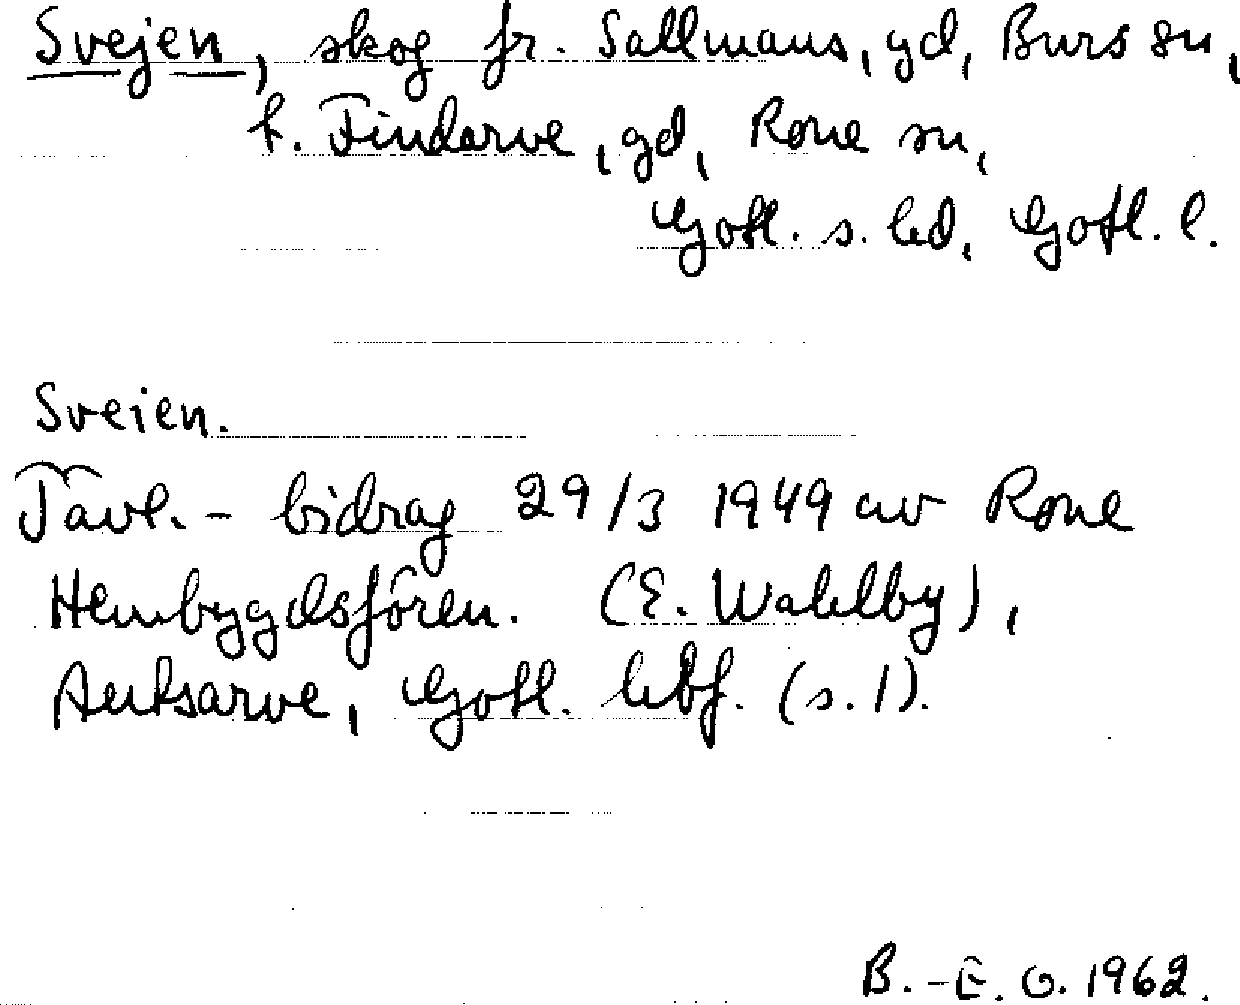 Svejen, skog fr. Sallmans, gd, Burs sn,
t. Findarve, gd, Rone sn,
Gotl. s. hd, Gotl. l.
Sveien.
Tävl.-bidrag 29/3 1949 av Rone
Hembygdsfören. (E. Wahlby),
Autsarve, Gotl. hbf. (s. 1).
B.-E. O. 1962.